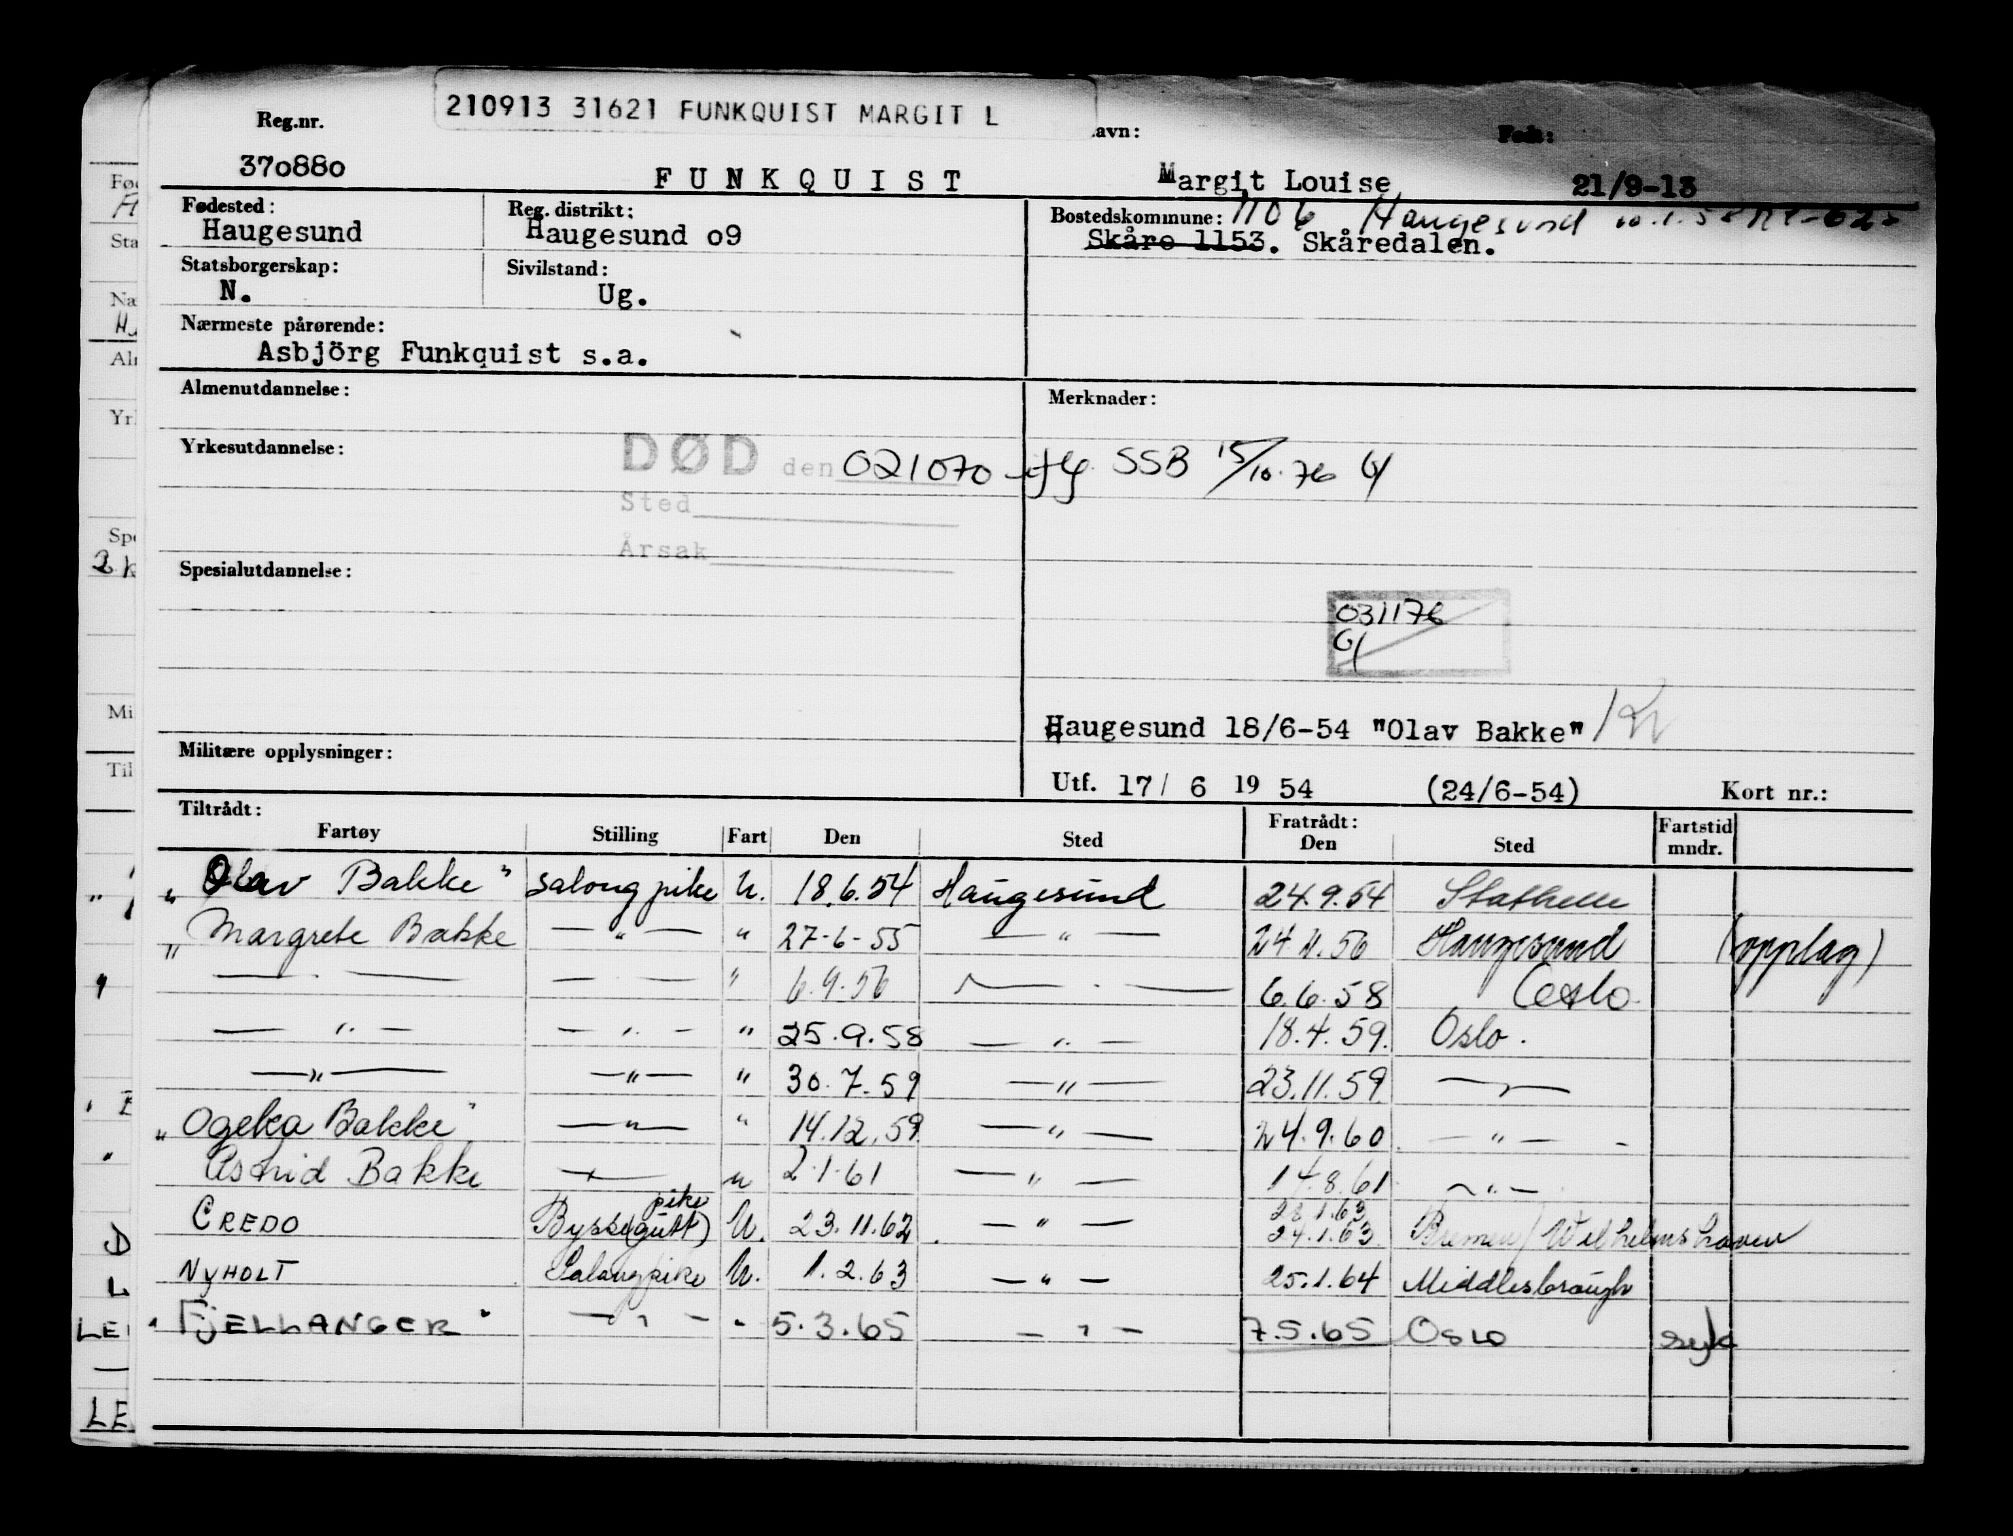 210913 31621 FUNKQUIST MARGIT L
Reg.nr.
avn:
Født:
370880
FUNKQUIST
Margit Louise
21/9-13
Fødested:
Haugesund
Reg. distrikt:
Haugesund 09
Bostedskommune: 1106 Haugesund
Skåre 1153. Skåredalen.
Statsborgerskap:
N.
Sivilstand:
Ug.
Nærmeste pårørende:
Asbjörg Funkquist s.a.
Almenutdannelse:
Merknader:
Yrkesutdannelse:
DØD den 021070 ifg. SSB 15/10.76
Sted
Årsak
Spesialutdannelse:
031176
Haugesund 18/6-54 "Olav Bakke"
Militære opplysninger:
Utf. 17/ 6 19 54 (24/6-54) Kort nr.:
Tiltrådt:
Fratrådt:
Fartøy Stilling Fart Den Sted Den Sted Fartstid mndr.
"Olav Bakke" salongpike U. 18.6.54 Haugesund 24.9.54 Stathelle
"Margrete Bakke — " — " 27-6-55 — " — 24.4.56 Haugesund (opplag)
— — — — " 6.9.56 — — 6.6.58 Oslo.
— " — — " — " 25.9.58 — " — 18.4.59. Oslo.
— " — — " — " 30.7.59 — " — 23.11.59 — " —
"Ogeka Bakke" — " — " 14.12.59 — " — 24.9.60 — " —
Astrid Bakke — " — " 2.1.61 — " — 14.8.61 — " —
CREDO Bysse(gutt) pike U. 23.11.62 — " — 28.1.63 24.1.63 Bremen/Wilhelmshaven
NYHOLT Salongpike U. 1.2.63 — " — 25.1.64 Middlesbrough
"FJELLANGER" — " — " 5.3.65 — " — 7.5.65 OSLO syk